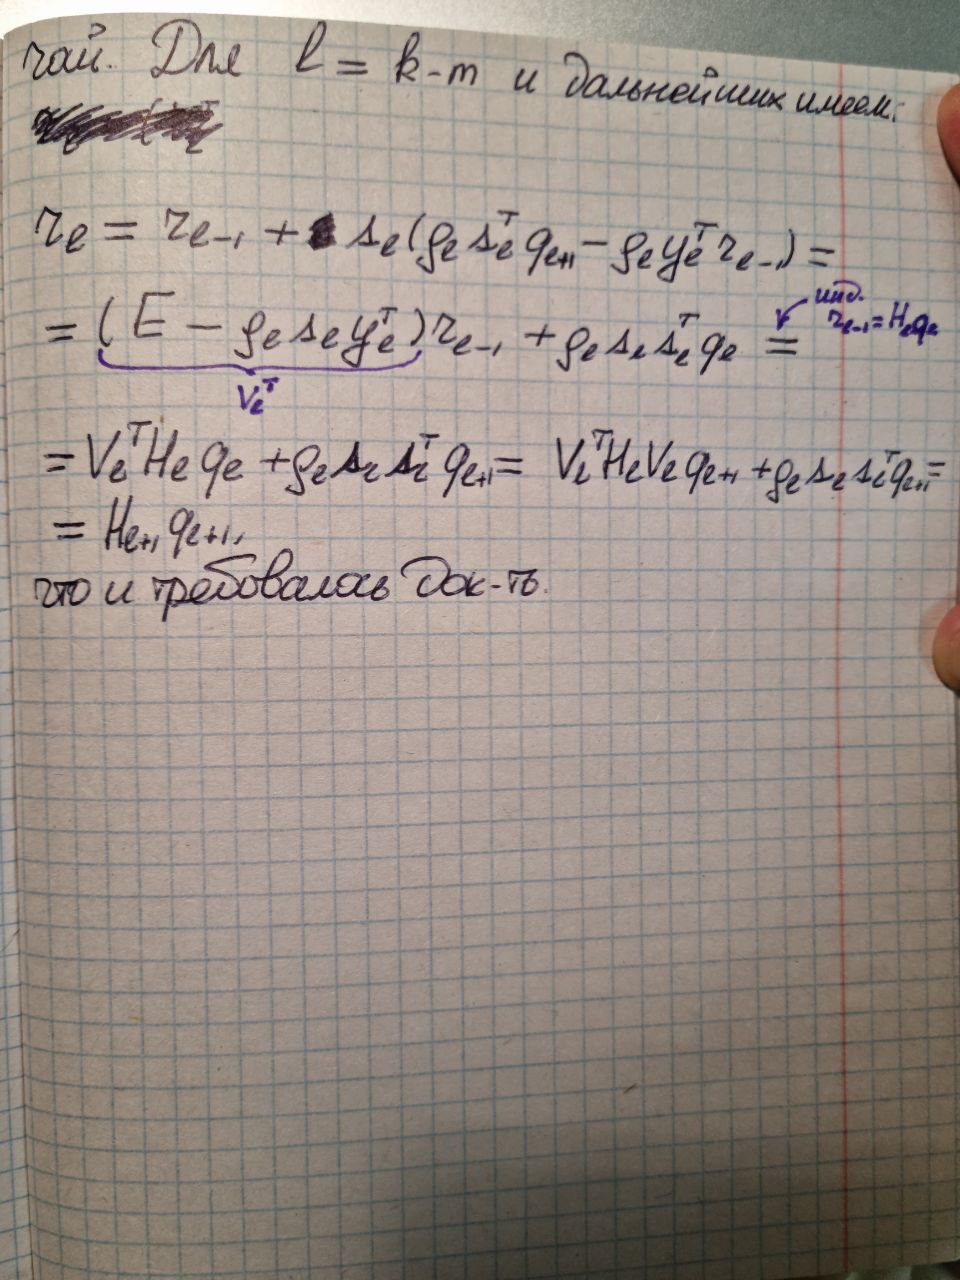 чай. Для l = k-m и дальнейших имеем:
r_l = r_{l-1} + s_l(ρ_l s_l^T q_{l+1} - ρ_l y_l^T r_{l-1}) =
= (E - ρ_l s_l y_l^T) r_{l-1} + ρ_l s_l s_l^T q_l =
инд.
r_{l-1} = H_l q_l
V_l^T
= V_l^T H_l q_l + ρ_l s_l s_l^T q_{l+1} = V_l^T H_l V_l q_{l+1} + ρ_l s_l s_l^T q_{l+1} =
= H_{l+1} q_{l+1},
что и требовалось док-ть.